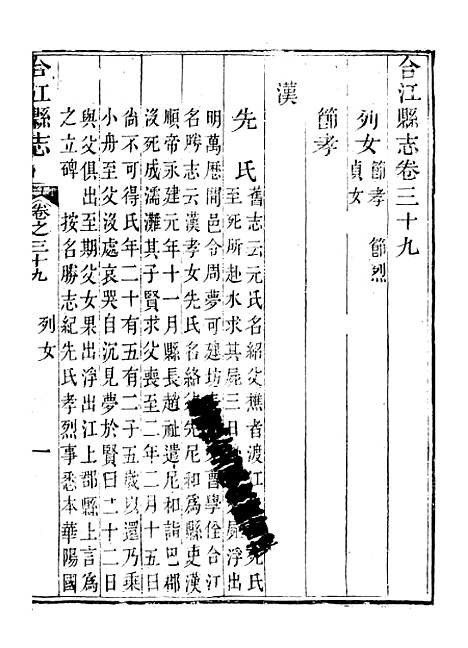 合江縣志卷三十九
列女 節孝 節烈
貞女
節孝
漢
先氏 舊志云元氏名紹父樵者渡江
至死所赴水求其屍三日
屍浮出
明萬歷間邑令周夢可建坊
曹學佺合江
名勝志云漢孝女先氏名絡父先尼和爲縣吏漢
順帝永建元年十一月縣長趙祉遣尼和詣巴郡
沒死成濡灘其子賢求父喪至二年二月十五日
尚不可得氏年二十有五有二子五歲以還乃乘
小舟至父沒處哀哭自沉見夢於賢曰二十二日
與父俱出至期父女果出浮出江上郡縣上言爲
之立碑 按名勝志紀先氏孝烈事悉本華陽國
合江縣志
卷之三十九
列女
一